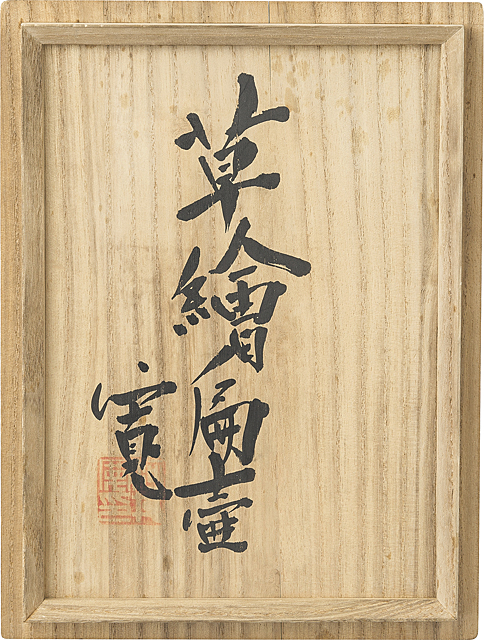 草繪扁壷
寛